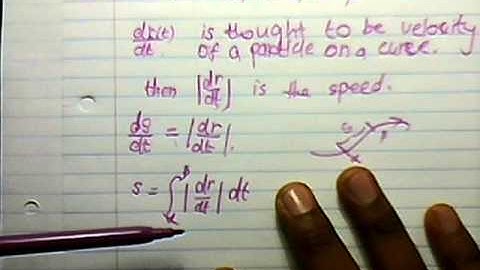 dr(t)/dt is thought to be velocity
of a particle on a curve.
then |dr/dt| is the speed.
ds/dt = |dr/dt|.
s = ∫ |dr/dt| dt